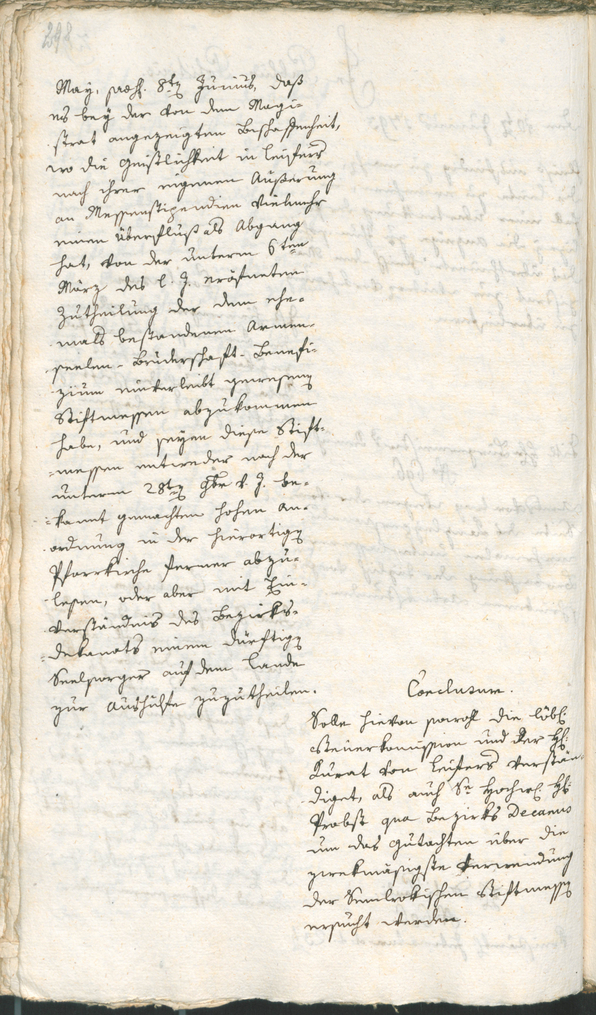 298
May, præs. 8ten Junius, daß
es bey der von dem Magi-
strat angezeigten Beschaffenheit,
wo die Geistlichkeit in Leifers
nach ihrer eigenen Äußerung
an Messenstipendien vielmehr
einen Überfluß als Abgang
hat, von der unterm 6ten
März des l. J. eröfneten
Zutheilung der dem ehe-
mals bestandenen Armen-
seelen-Bruderschaft-Benefi-
zium einverleibt gewesenen
Stiftmessen abzukommen
habe, und seyen diese Stift-
messen entweder nach der
unterm 28ten 9br v. J. be-
kannt gemachten hohen An-
ordnung in der hierortigen
Pfarrkirche ferner abzu-
lesen, oder aber mit Ein-
verständnis des Bezirks-
dekanats einem dürftigen
Seelsorger auf dem Lande
zur Aushilfe zuzutheilen.
Conclusum.
Solle hievon sowohl die löbl.
Steuerkommission und der H.
Kurat von Leifers verstän-
diget, als auch Se Hochw. H.
Probst qua Bezirks Decanus
um das Gutachten über die
zwekmäsigste Verwendung
der Stiftmessen
ersucht werden.